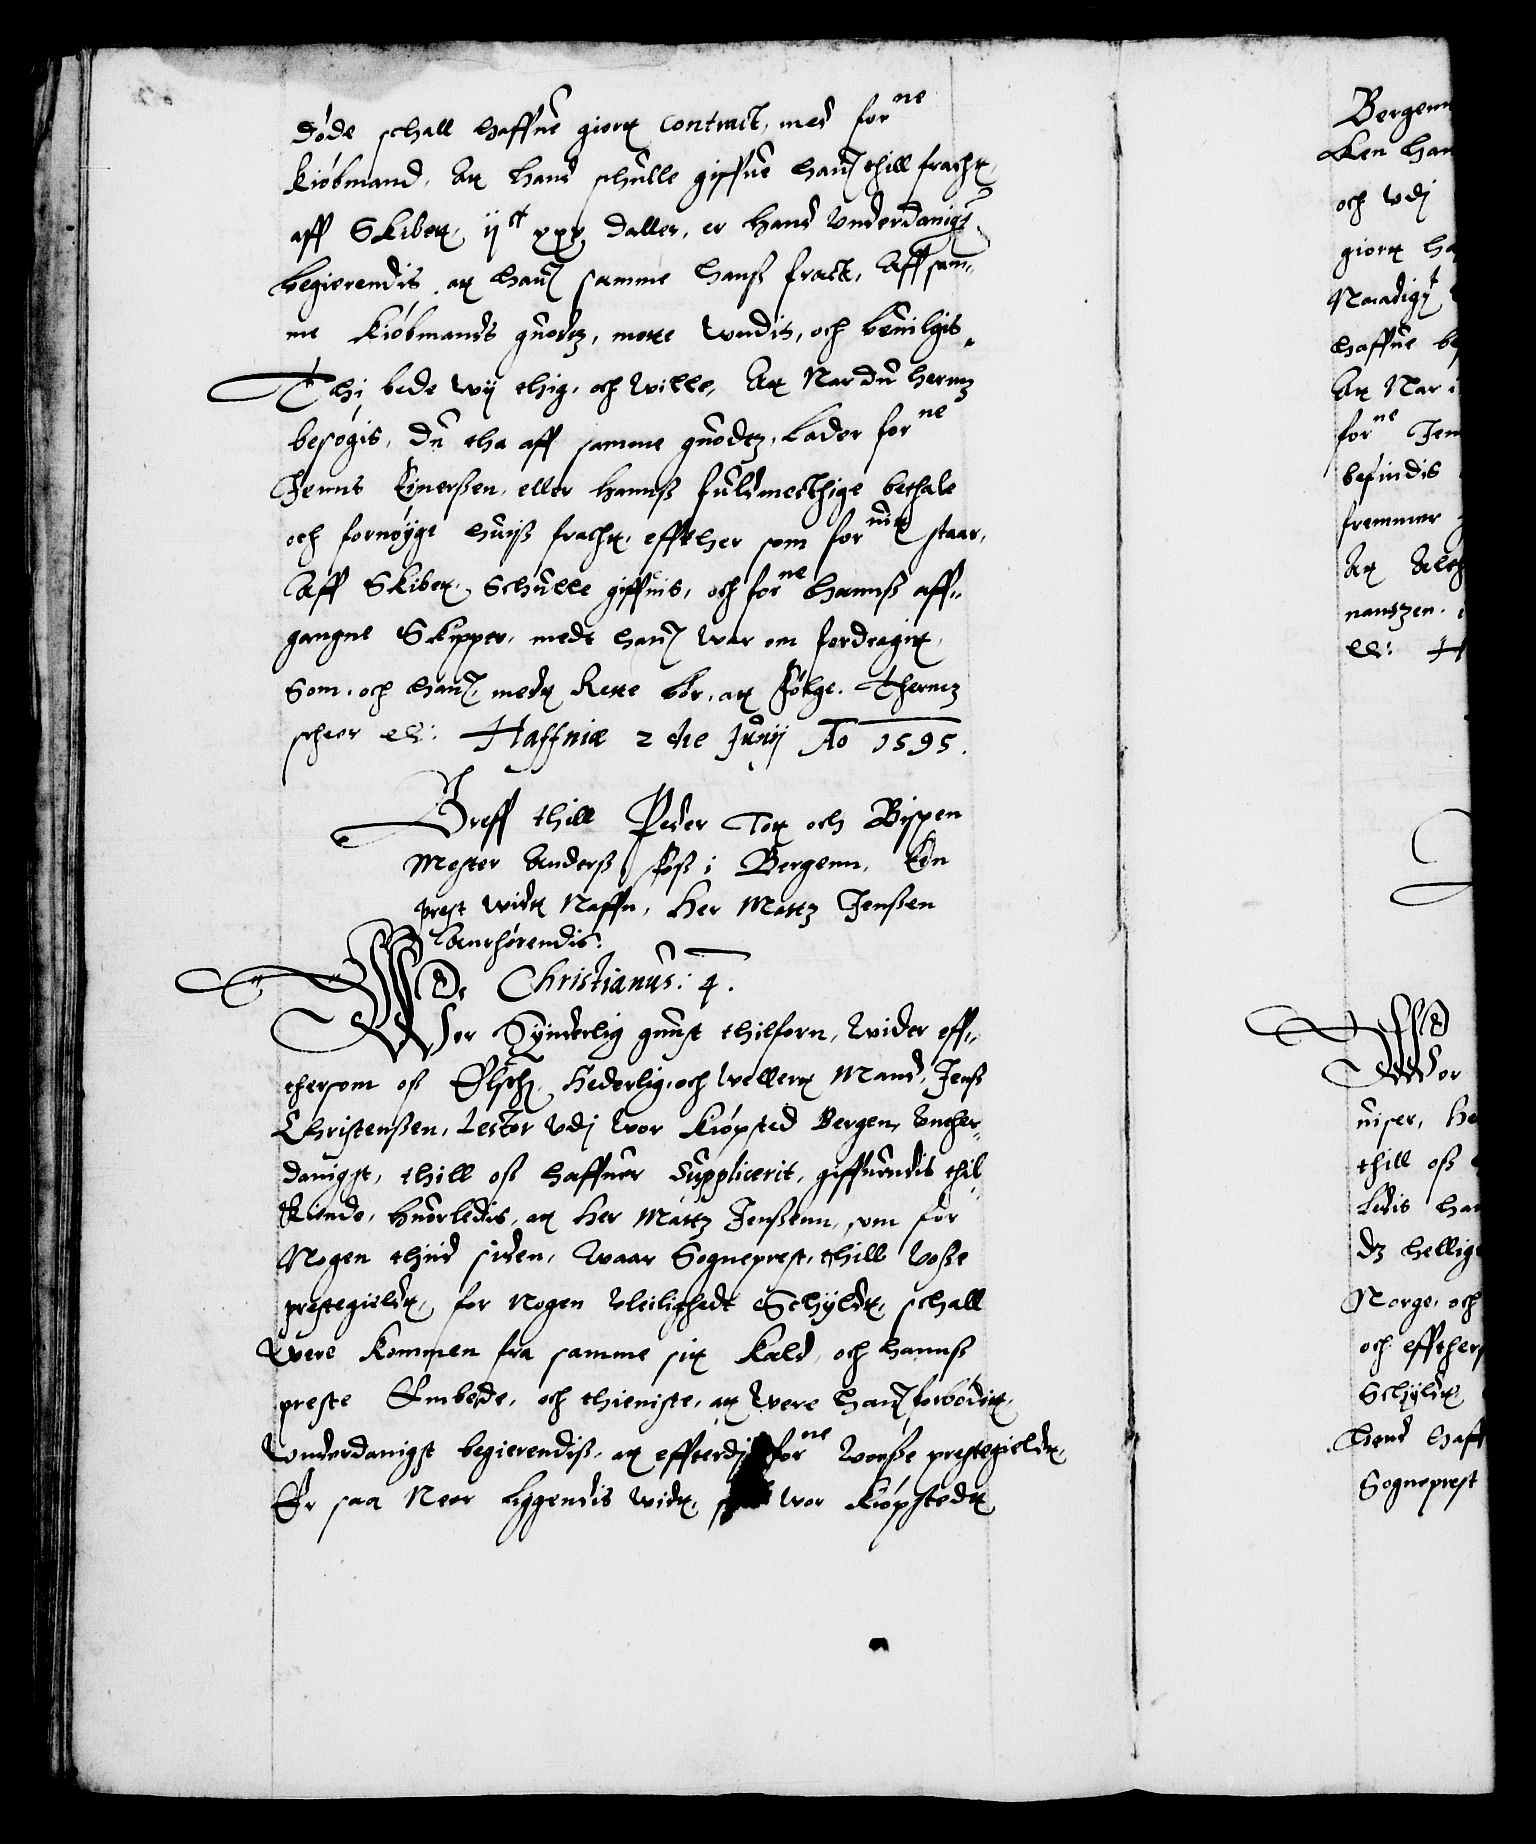 døde schall haffue giortt contract, med for^ne
kiøbmand. Att hand schulle giffue hanņ thill fracht,
aff Skibett, ij^ct xxx daller, er hand Vnderdanigst
begierendis, att hanņ samme hanß fract, Aff sam„
me kiøbmands guodtz, motte vndis, och beuilgis„
Thi bede wij thig, och wille, Att Nar du hermz
besøgis, du tha aff samme guodtz, Lader for^ne
Jenns Einerßen, eller hannß fuldmecthige bethale
och fornøyge huiß fracht, effther som for^uit staar,
Aff Skibett, Schulle giffuis, och for^ne hannß aff„
gangne Skipper, mede hanņ war om fordragit,
Som, och hanņ, medt Rette bør, att følge. Thermz
scheer etc: Haffniæ 2 die Junij Ao 1595.
Breff thill Peder Tott och Bispen
Mester Anderß foß i Bergenn, Een
prest widt Naffn, Her Mattz Jenßen
Anrhørendis:
Christianus: 4.
Wor Synderlig gunst thilforn, Wider eff„
thersom oß Elschņ, Hederlig, och wellertt Mand, Jenß
Christenßen, Lector vdj wor kiøpsted Bergen, Vnther„
danigst, thill oß haffuer Supplicerit, giffuendis thil„
kiende, huorledis, att Her Mattz Jenßenn, som for
Nogen thiid siden, waar Sogneprest, thill Voße
prestegieldt, for nogen vleilighedt Schyldt, schall
were kommen fra samme sitt kald, och hannß
preste Embede, och thieniste, att were hanņ forbødit,
Vnderdanigst begierendiß, att effterdj for^ne Vonße prestegieldt,
Er saa Neer liggendis widt, wor kiøpstedt
Bergenn
och vdj
giort
Naadigst
haffue
Att Nar
for^ne
befindis
fremmer
Att
nanszen.
etc: H
Wor
uiser, He
thill oß
ledis
dz hellig
Norge, och
och effther
Schyldt
hend haff
Sogneprest